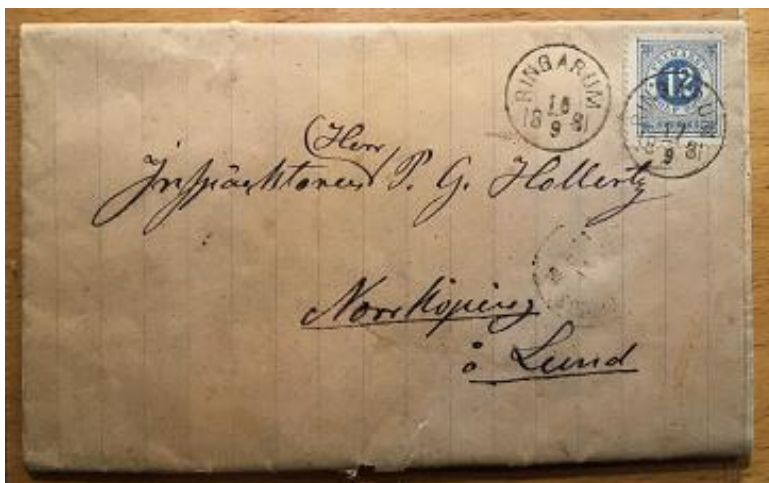 RINGARUM
18 9 81
12
17
9 81
Herr
Inspäcktoren P. G. Hollertz
Norrköping
å Lund